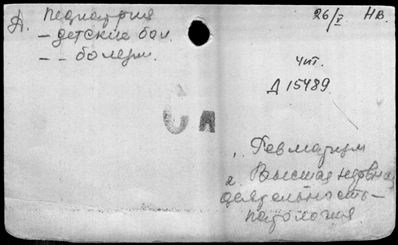 Д. педиатрия
- детские бол.
- - болезн.
26/V НВ.
Чит.
Д 15489
СА
1. Ревматизм
2. Высшая нервная
деятельность -
патология